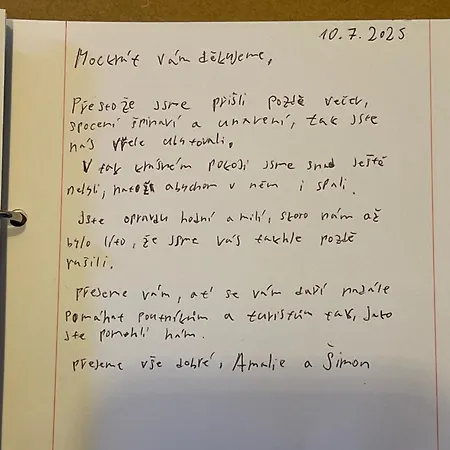 10.7.2025
Mockrát vám děkujeme,
Přestože jsme přišli pozdě večer,
spocení špinaví a unavení, tak jste
nás vřele ubytovali.
V tak krásném pokoji jsme snad ještě
nebyli, natož abychom v něm i spali.
Jste opravdu hodní a milí, skoro nám až
bylo líto, že jsme vás takhle pozdě
rušili.
Přejeme vám, ať se vám daří nadále
pomáhat poutníkům a turistům tak, jako
jste pomohli nám.
Přejeme vše dobré, Amalie a Šimon